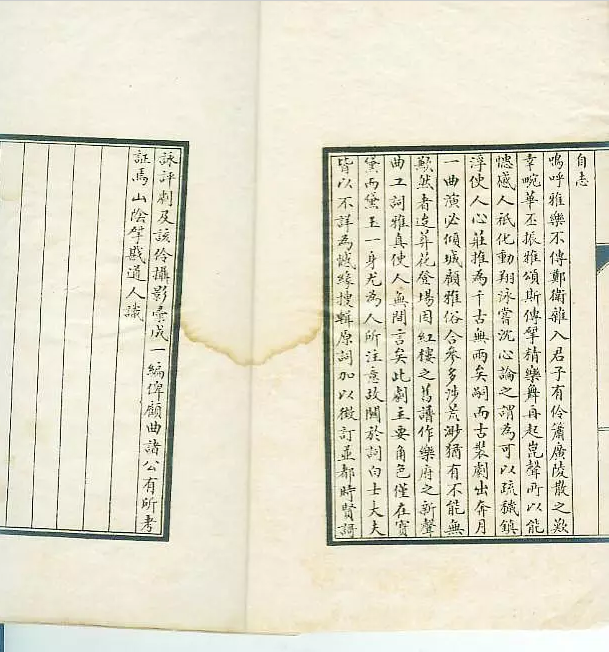 自志
嗚呼雅樂不傳鄭衛雜入君子有伶簫廣陵散之歎
幸畹華丕振雅頌斯傳犖精樂舞再起崑聲所以能
憁感人祇化動翔泳嘗沈心論之謂為可以疏穢鎮
浮使人心莊推為千古無兩矣嗣而古裝劇出奔月
一曲演必傾城顧雅俗合參多涉荒渺猶有不能無
歉然者迨葬花登場因紅樓之舊譜作樂府之新聲
曲工詞雅真使人無閒言矣此劇主要角色僅在寶
黛而黛玉一身尤為人所注意故關於詞白士大夫
皆以不詳為憾緣搜輯原詞加以微訂並都時賢謌
詠評劇及該伶攝影彙成一編俾顧曲諸公有所考
証焉山陰犖戲道人識